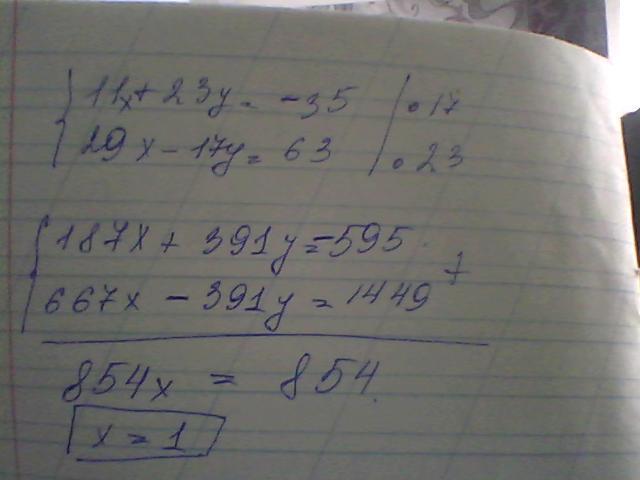 11x + 23y = -35 | • 17
29x - 17y = 63 | • 23
187x + 391y = -595
667x - 391y = 1449 +
854x = 854
x = 1